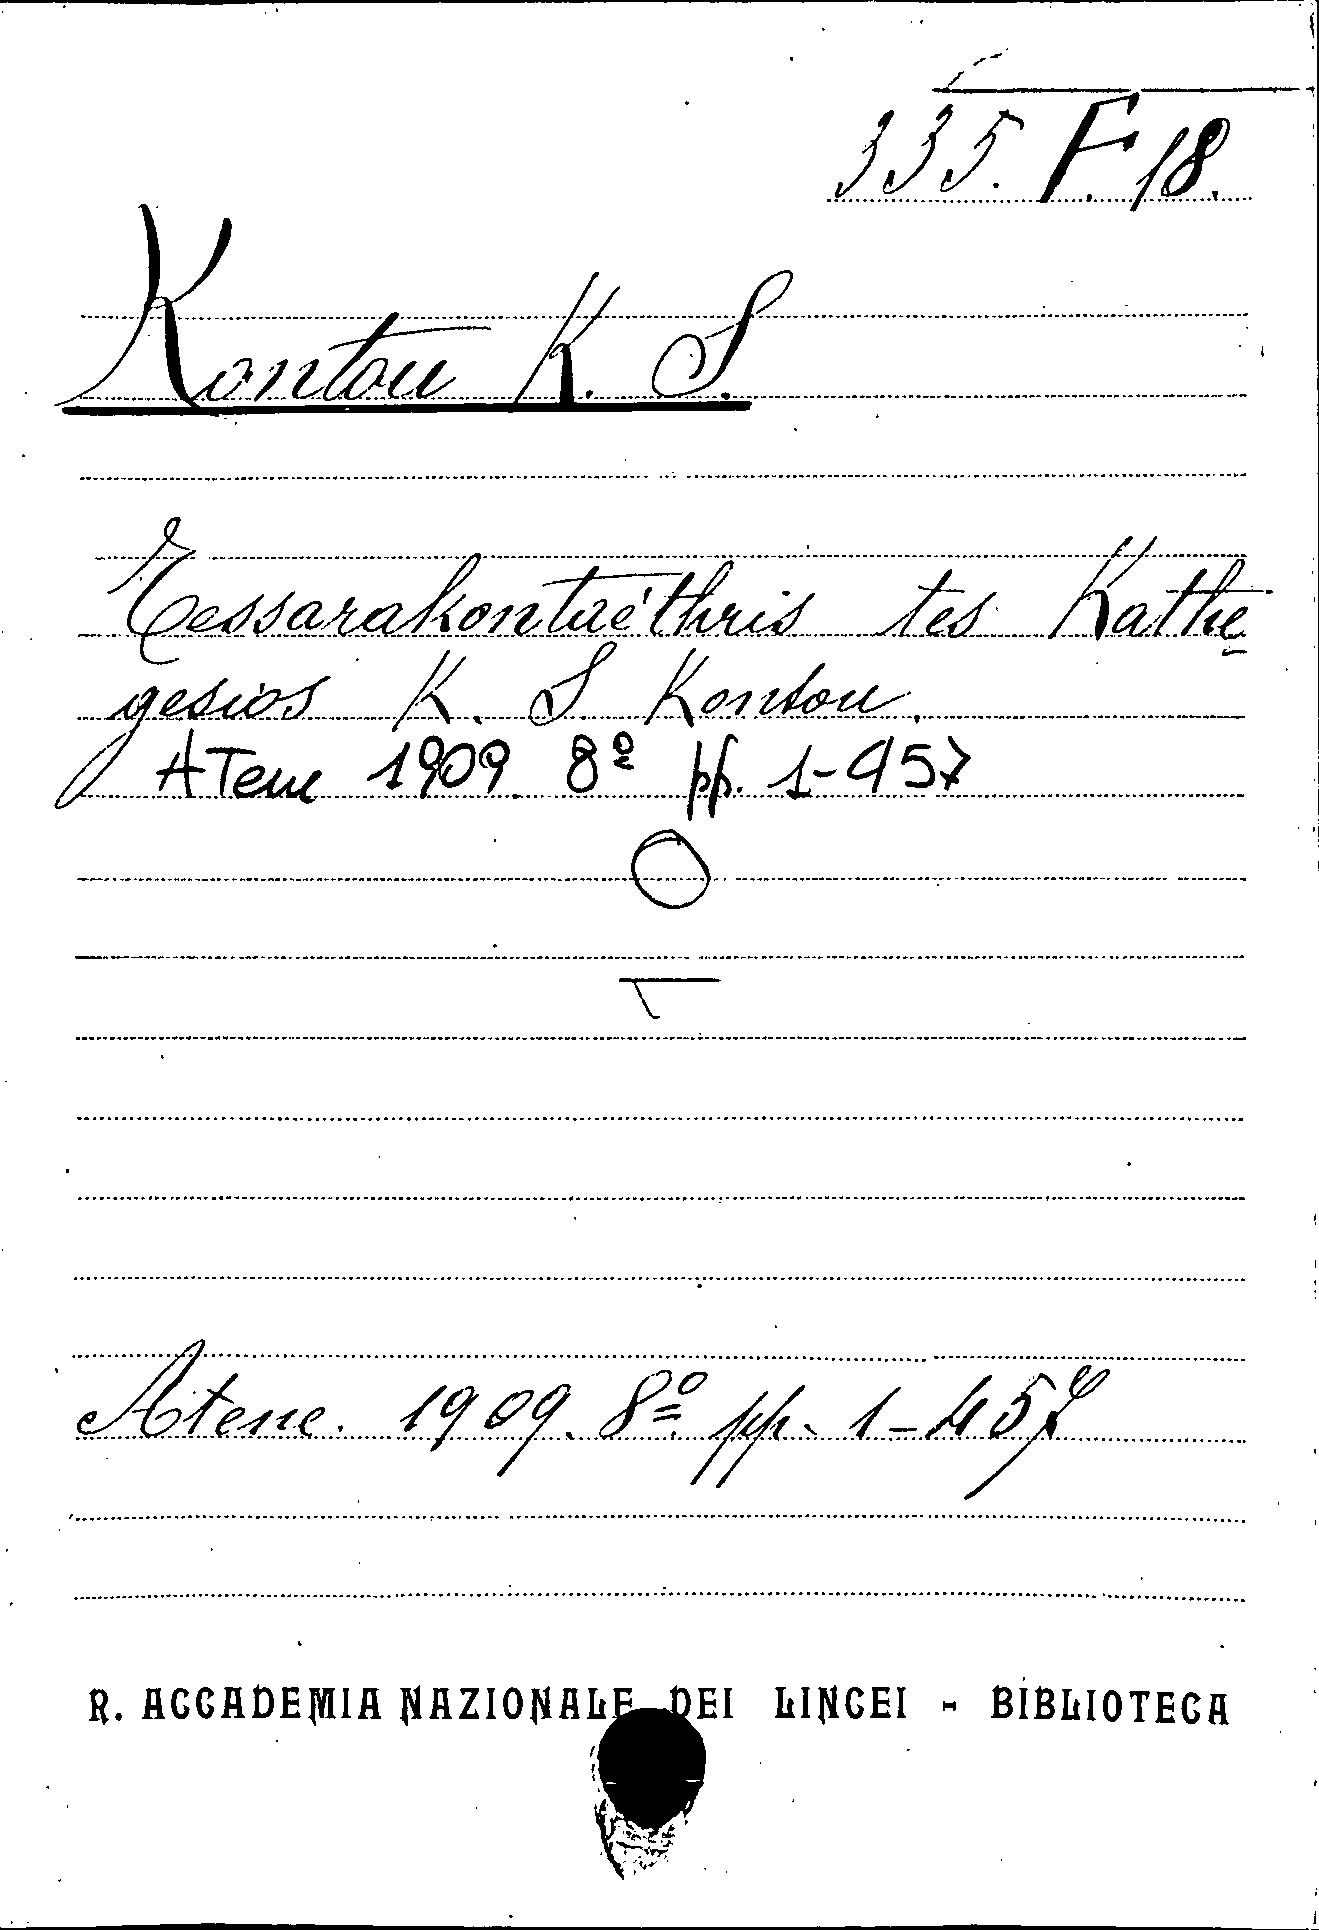 335. F. 18.
Kontou K. S.
Tessarakontaéthris tes Kathe
gesios K. S Kontou.
ATene 1909. 8º pp. 1-457
Atene. 1909. 8º pp. 1-457
R. ACCADEMIA NAZIONALE DEI LINCEI - BIBLIOTECA